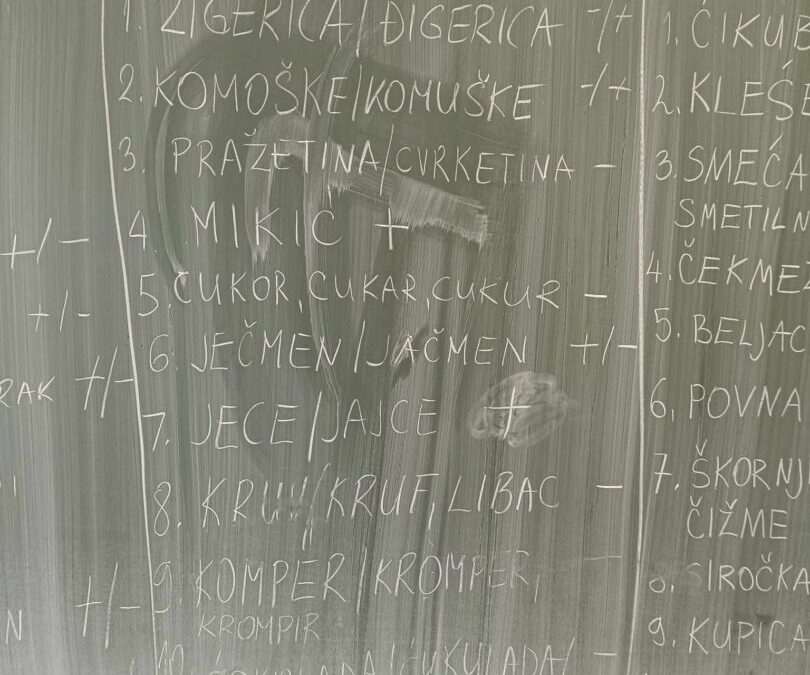 +/-
+/-
RAK +/-
N +/-
1. ŽIGERICA/ĐIGERICA -/+
2. KOMOŠKE/KOMUŠKE -/+
3. PRAŽETINA/CVRKETINA -
4. MIKIĆ +
5. CUKOR, CUKAR, CUKUR -
6. JEČMEN/JAČMEN +/-
7. JECE/JAJCE +
8. KRUV/KRUF, LIBAC -
9. KOMPER/KROMPER -
KROMPIR
10. /ČUKULADA/ -
1. ČIKUB
2. KLEŠĆ
3. SMEĆA
SMETILN
4. ČEKMEZ
5. BELJAC
6. POVNA
7. ŠKORNJ
ČIŽME
8. SIROČKA
9. KUPICA